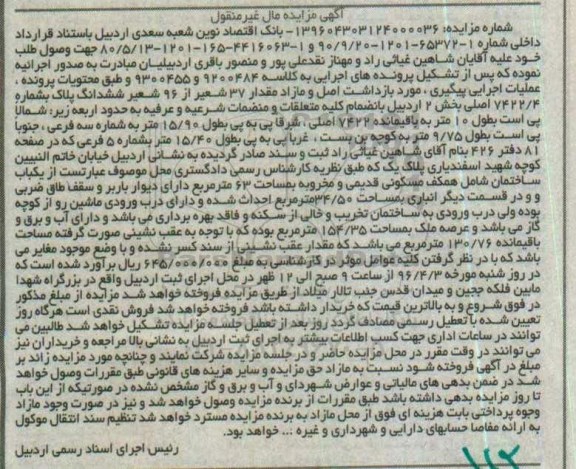 آگهی مزایده مال غیرمنقول
شماره مزایده: ۱۳۹۶۰۴۳۰۳۱۲۴۰۰۰۰۳۶- بانک اقتصاد نوین شعبه سعدی اردبیل باستناد قرارداد
داخلی شماره ۱-۶۵۳۷۲-۱۲۰۱-۹۰/۹/۲۰ و ۱-۴۴۱۶۰۶۳-۱۶۵-۱۲۰۱-۸۰/۵/۱۳ جهت وصول طلب
خود علیه آقایان شاهین غیاثی راد و مهناز نقدعلی پور و منصور باقری اردبیلیان مبادرت به صدور اجرائیه
نموده که پس از تشکیل پرونده های اجرایی به کلاسه ۹۲۰۰۴۸۴ و ۹۳۰۰۴۵۵ و طبق محتویات پرونده ،
عملیات اجرایی پیگیری ، مورد بازداشت اصل و مازاد مقدار ۳۷ شعیر از ۹۶ شعیر ششدانگ پلاک بشماره
۷۴۲۲/۴ اصلی بخش ۲ اردبیل بانضمام کلیه متعلقات و منضمات شرعیه و عرفیه به حدود اربعه زیر: شمالاً
پی است بطول ۱۰ متر به باقیمانده ۷۴۲۲ اصلی ، شرقا پی به پی بطول ۱۵/۹۰ متر به شماره سه فرعی ، جنوبا
پی است بطول ۹/۷۵ متر به کوچه بن بست ، غربا پی به پی بطول ۱۵/۴۰ متر بشماره ۵ فرعی که در صفحه
۸۱ دفتر ۴۲۶ بنام آقای شاهین غیاثی راد ثبت و سند صادر گردیده به نشانی اردبیل خیابان خاتم النبیین
کوچه شهید اسفندیاری پلاک یک که طبق نظریه کارشناس رسمی دادگستری محل موصوف عبارتست از یکباب
ساختمان شامل همکف مسکونی قدیمی و مخروبه بمساحت ۶۳ مترمربع دارای دیوار باربر و سقف طاق ضربی
و در قسمت دیگر انباری بمساحت ۳۴/۵۰ مترمربع احداث شده و دارای درب ورودی ماشین رو از کوچه
بوده ولی درب ورودی به ساختمان تخریب و خالی از سکنه و فاقد بهره برداری می باشد و دارای آب و برق و
گاز می باشد و عرصه ملک بمساحت ۱۵۴/۳۵ مترمربع بوده که با توجه به عقب نشینی صورت گرفته مساحت
باقیمانده ۱۳۰/۷۶ مترمربع می باشد که مقدار عقب نشینی از سند کسر نشده و با وضع موجود مغایر می
باشد که با در نظر گرفتن کلیه عوامل موثر در کارشناسی به مبلغ ۶۴۵/۰۰۰/۰۰۰ ریال برآورد شده است که
در روز شنبه مورخه ۹۶/۴/۳ از ساعت ۹ صبح الی ۱۲ ظهر در محل اجرای ثبت اردبیل واقع در بزرگراه شهدا
مابین فلکه ججین و میدان قدس جنب تالار میلاد از طریق مزایده فروخته خواهد شد مزایده از مبلغ مذکور
در فوق شروع و به بالاترین قیمت که خریدار داشته باشد فروخته خواهد شد فروش نقدی است هرگاه روز
تعیین شده با تعطیل رسمی مصادف گردد روز بعد از تعطیل جلسه مزایده تشکیل خواهد شد طالبین می
توانند در ساعات اداری جهت کسب اطلاعات بیشتر به اجرای ثبت اردبیل به نشانی بالا مراجعه و خریداران نیز
می توانند در وقت مقرر در محل مزایده حاضر و در جلسه مزایده شرکت نمایند و چنانچه مورد مزایده زائد بر
مبلغ در آگهی فروخته شود نسبت به مازاد حق مزایده و سایر هزینه های قانونی طبق مقررات وصول خواهد
شد در ضمن بدهی های مالیاتی و عوارض شهرداری و آب و برق و گاز مشخص نشده در صورتیکه از این باب
تا روز مزایده بدهی داشته باشد طبق مقررات از برنده مزایده وصول خواهد شد و نیز در صورت وجود مازاد
وجوه پرداختی بابت هزینه ای فوق از محل مازاد به برنده مزایده مسترد خواهد شد تنظیم سند انتقال موکول
به ارائه مفاصا حسابهای دارایی و شهرداری و غیره ... خواهد بود.
رئیس اجرای اسناد رسمی اردبیل